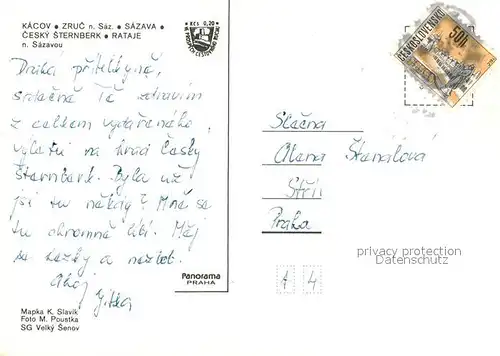 KÁCOV • ZRUČ n. Sáz. • SÁZAVA •
ČESKÝ ŠTERNBERK • RATAJE
n. Sázavou
Kčs 0,20
Drahá přítelkyně,
srdečně Tě zdravím
z celkem vydařeného
výletu na hrad Český
Šternberk. Byla už
jsi tu někdy? Mně se
tu ohromně líbí. Měj
se hezky a nezlob.
Ahoj
Jitka
Panorama
PRAHA
Mapka K. Slavík
Foto M. Poustka
SG Velký Šenov
ČESKOSLOVENSKO
50h
Slečna
Alena
Praha
privacy protection
Datenschutz
A 4